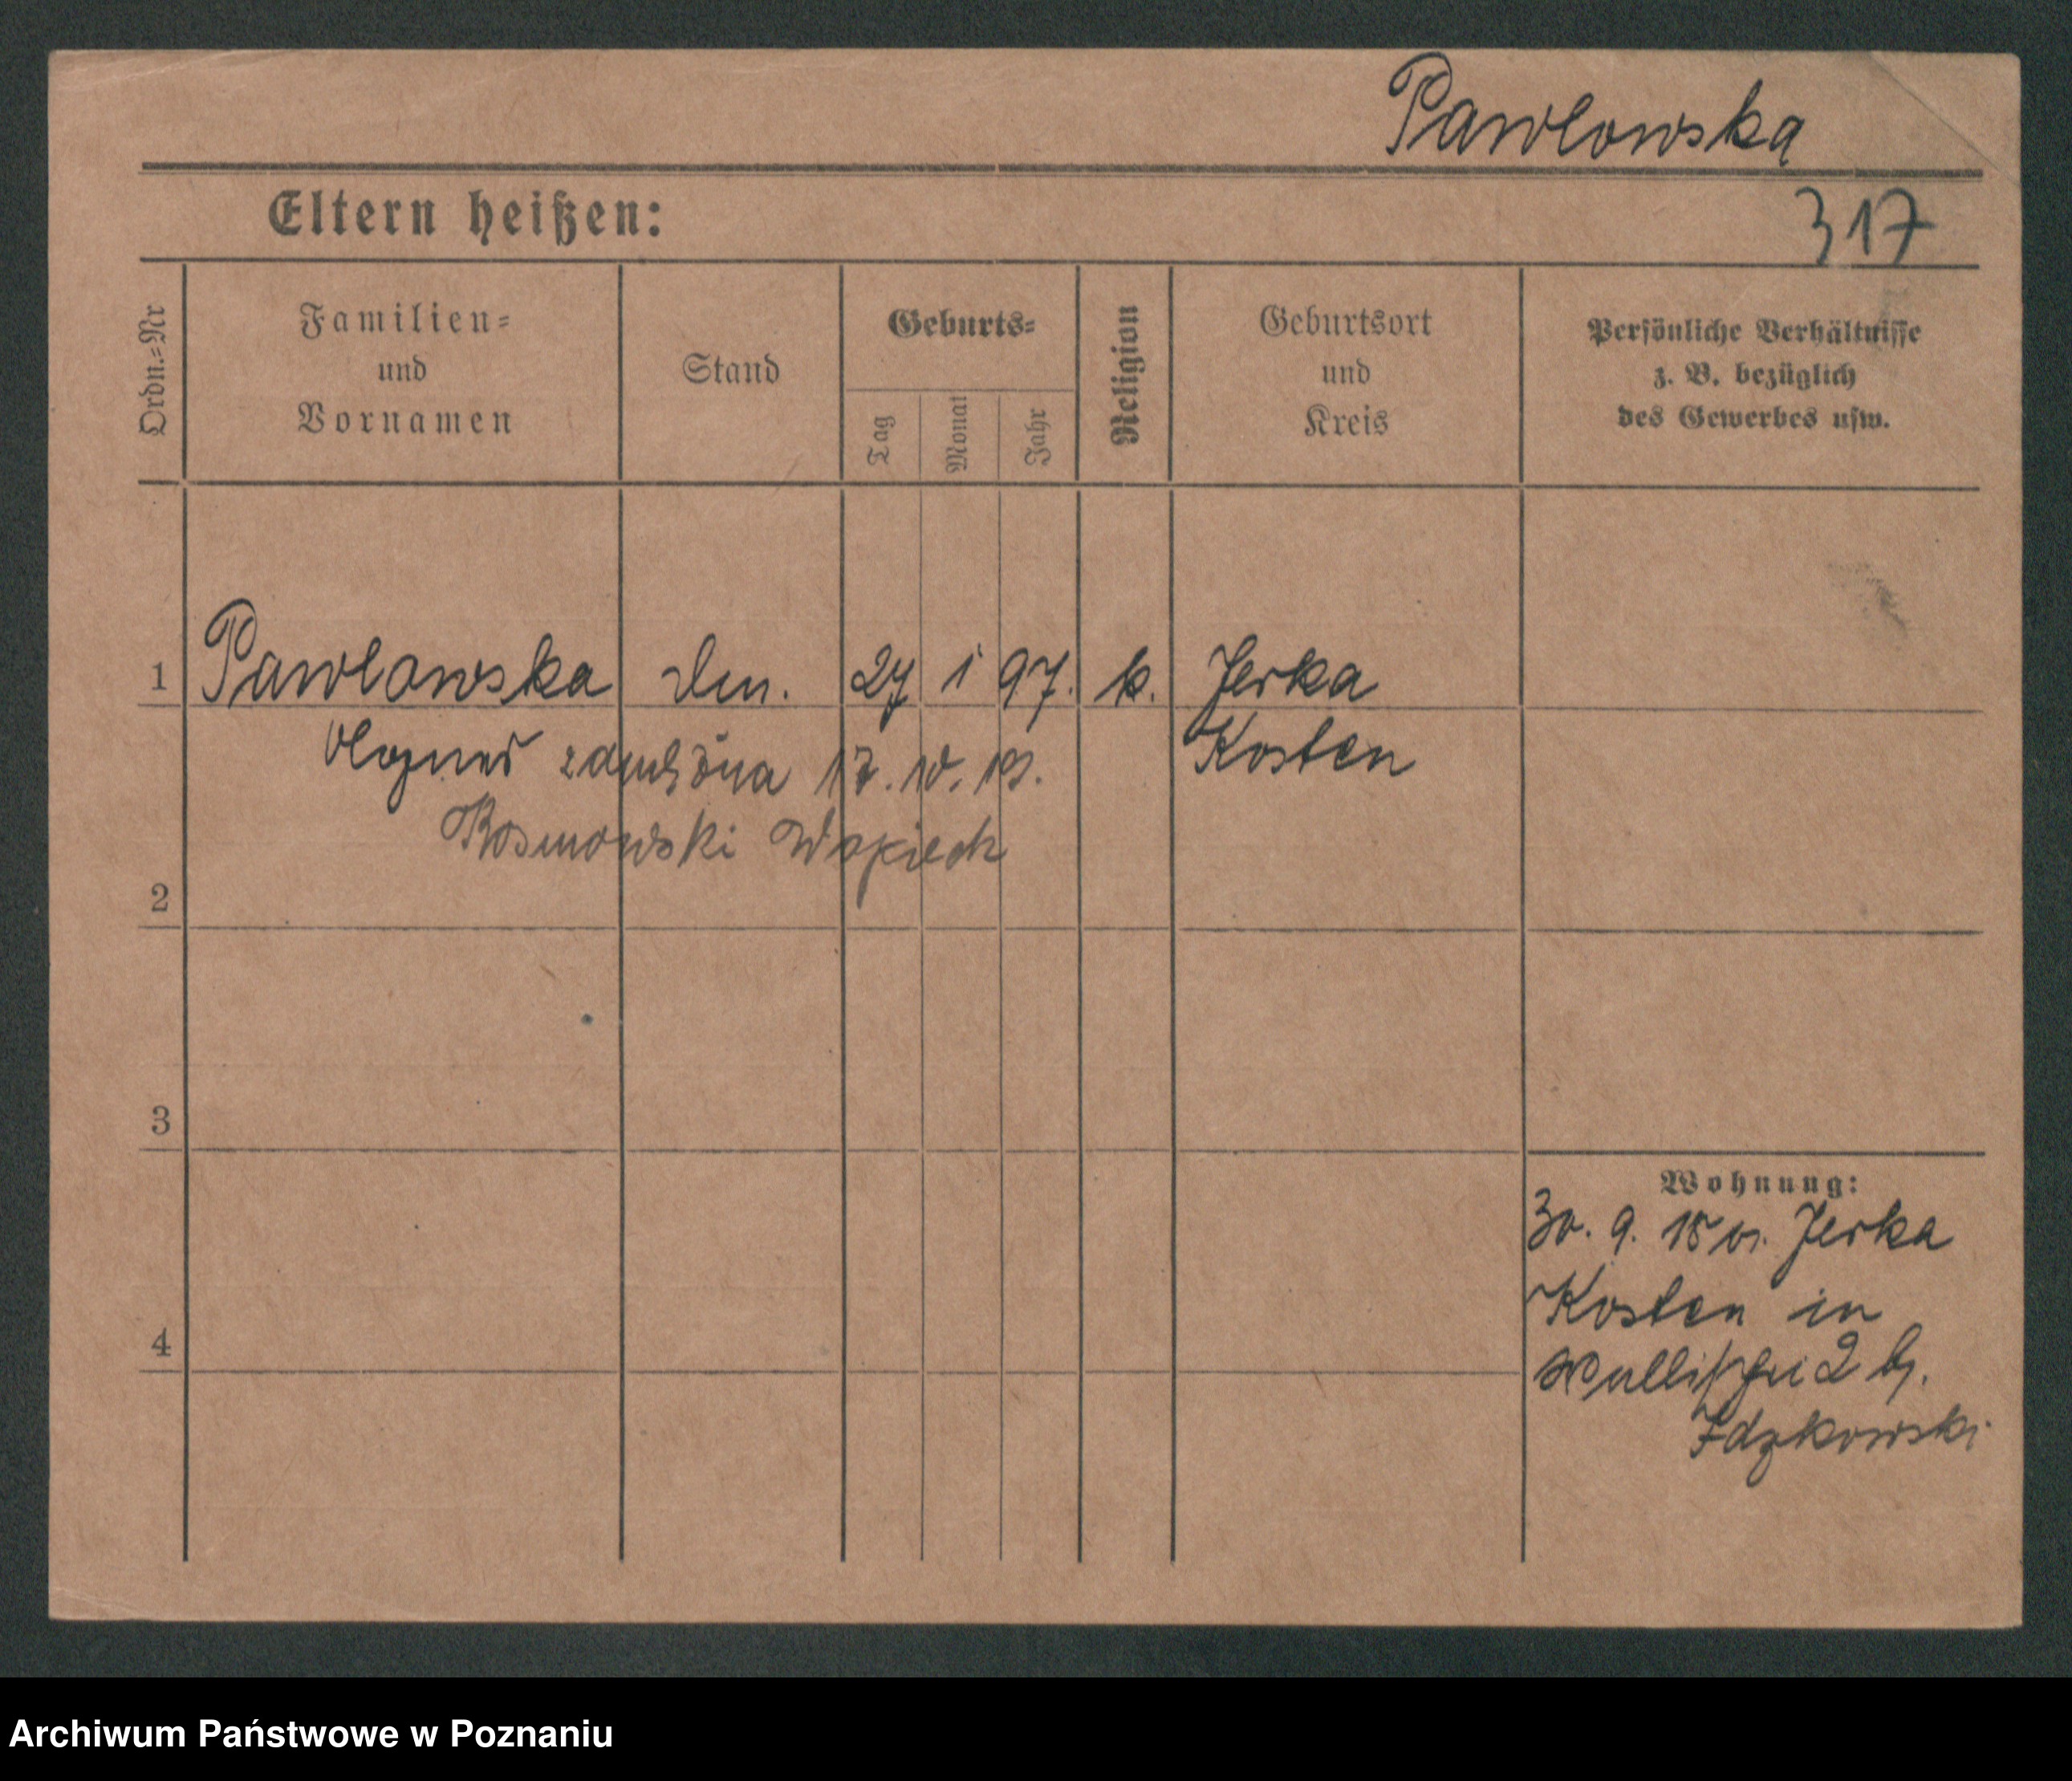 Pawlowska
Eltern heißen:
317
Ordn.=Nr
Familien=
und
Vornamen
Stand
Geburts=
Tag
Monat
Jahr
Religion
Geburtsort
und
Kreis
Persönliche Verhältnisse
z. B. bezüglich
des Gewerbes usw.
1
Pawlowska
27 1 97. k. Jerka
Agnes 17. 10. 19.
Kosten
Wojciech
2
3
4
Wohnung:
30. 9. 18 v. Jerka
Kosten in
Wallischei 2 b.
Idzkowski
Archiwum Państwowe w Poznaniu